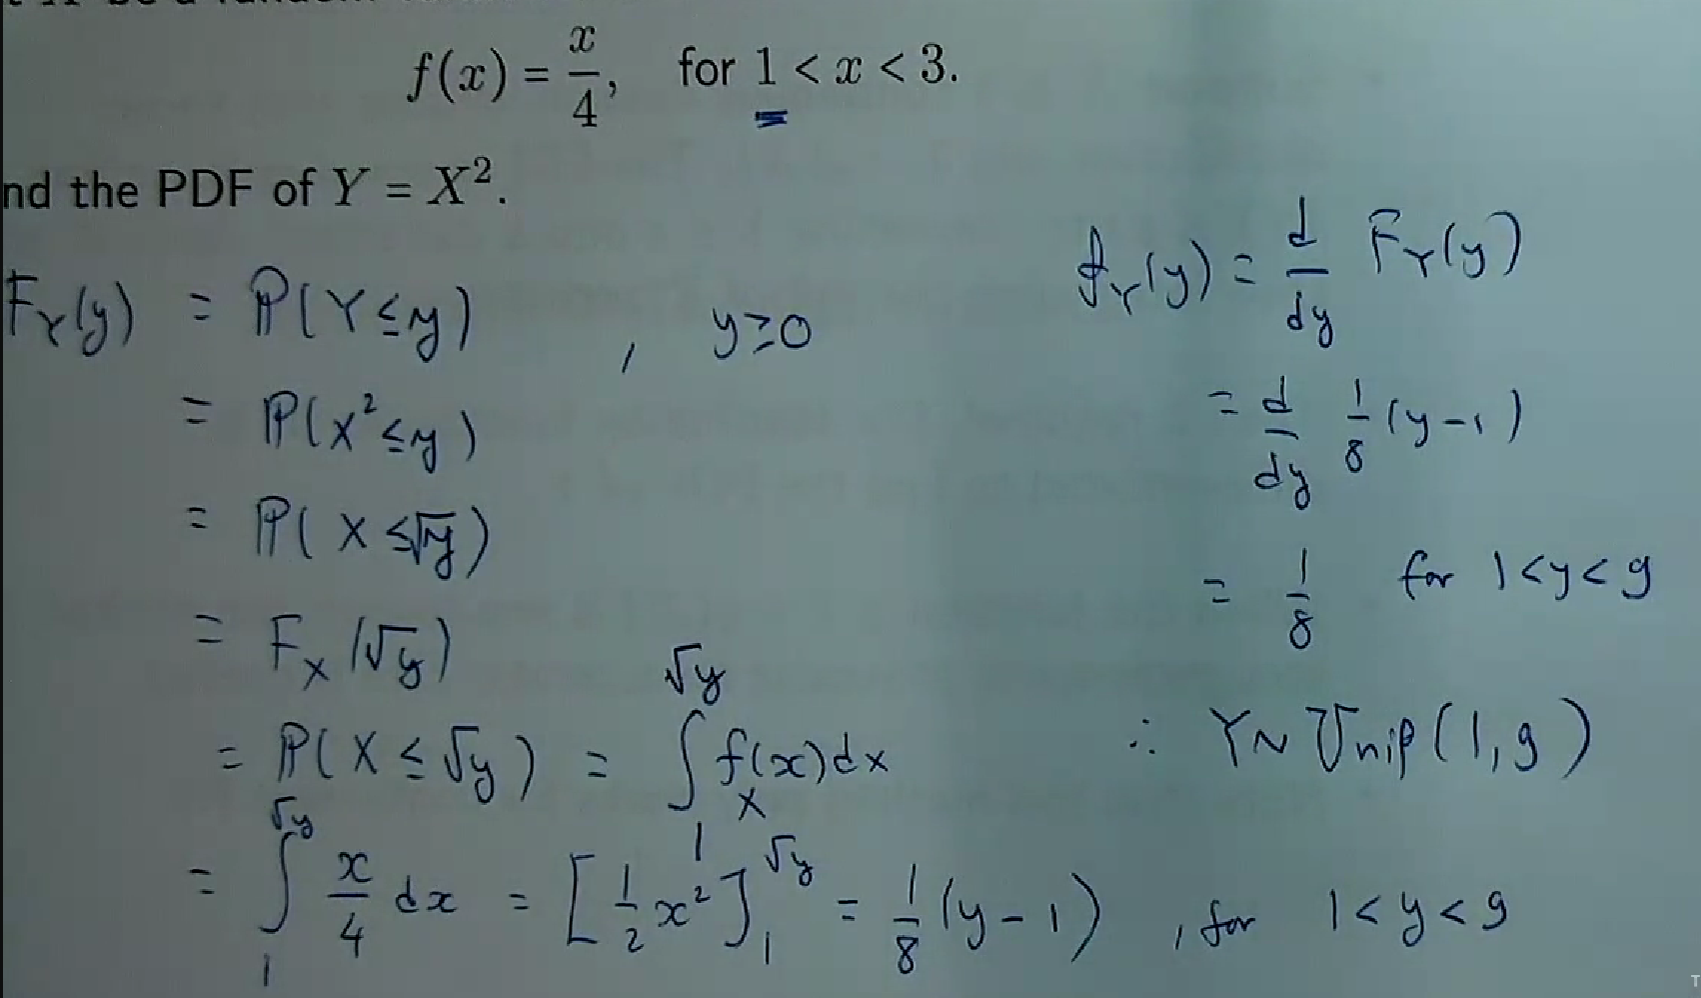 be a random
f(x) = x/4, for 1 < x < 3.
nd the PDF of Y = X².
F_Y(y) = ℙ(Y ≤ y) , y ≥ 0
= ℙ(X² ≤ y)
= ℙ(X ≤ √y)
= F_X(√y)
= ℙ(X ≤ √y) = ∫_1^√y f_X(x) dx
= ∫_1^√y x/4 dx = [1/2 x²]_1^√y = 1/8 (y - 1) , for 1 < y < 9
f_Y(y) = d/dy F_Y(y)
= d/dy 1/8 (y - 1)
= 1/8 for 1 < y < 9
∴ Y ~ Unif(1, 9)